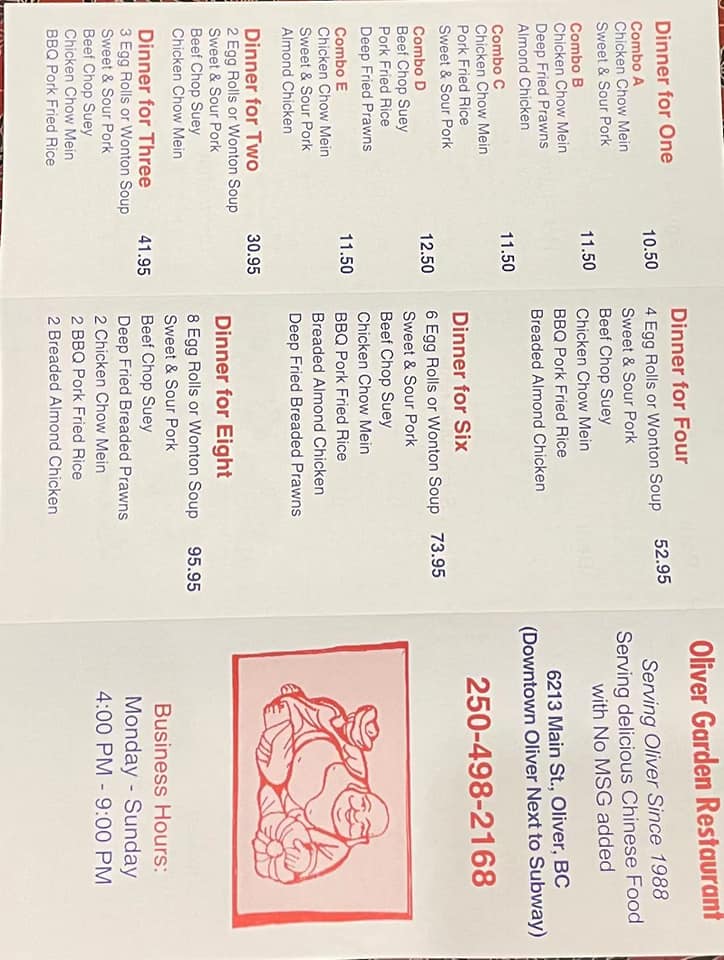 Dinner for One
Combo A 10.50
Chicken Chow Mein
Sweet & Sour Pork
Combo B 11.50
Chicken Chow Mein
Deep Fried Prawns
Almond Chicken
Combo C 11.50
Chicken Chow Mein
Pork Fried Rice
Sweet & Sour Pork
Combo D 12.50
Beef Chop Suey
Pork Fried Rice
Deep Fried Prawns
Combo E 11.50
Chicken Chow Mein
Sweet & Sour Pork
Almond Chicken
Dinner for Two 30.95
2 Egg Rolls or Wonton Soup
Sweet & Sour Pork
Beef Chop Suey
Chicken Chow Mein
Dinner for Three 41.95
3 Egg Rolls or Wonton Soup
Sweet & Sour Pork
Beef Chop Suey
Chicken Chow Mein
BBQ Pork Fried Rice
Dinner for Four
4 Egg Rolls or Wonton Soup 52.95
Sweet & Sour Pork
Beef Chop Suey
Chicken Chow Mein
BBQ Pork Fried Rice
Breaded Almond Chicken
Dinner for Six
6 Egg Rolls or Wonton Soup 73.95
Sweet & Sour Pork
Beef Chop Suey
Chicken Chow Mein
BBQ Pork Fried Rice
Breaded Almond Chicken
Deep Fried Breaded Prawns
Dinner for Eight
8 Egg Rolls or Wonton Soup 95.95
Sweet & Sour Pork
Beef Chop Suey
Deep Fried Breaded Prawns
2 Chicken Chow Mein
2 BBQ Pork Fried Rice
2 Breaded Almond Chicken
Oliver Garden Restaurant
Serving Oliver Since 1988
Serving delicious Chinese Food
with No MSG added
6213 Main St., Oliver, BC
(Downtown Oliver Next to Subway)
250-498-2168
Business Hours:
Monday - Sunday
4:00 PM - 9:00 PM